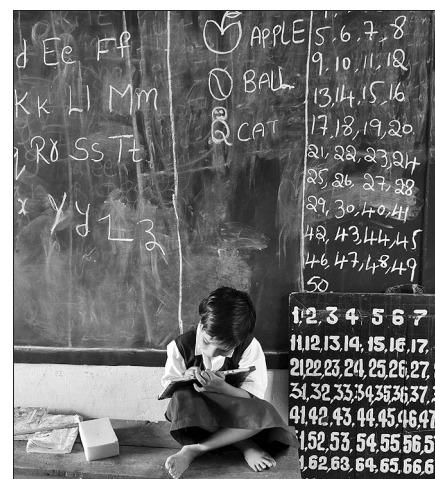 d Ee Ff
Kk Ll Mm
q Rr Ss Tt
x Yy Zz
APPLE
BALL
CAT
5, 6, 7, 8
9, 10, 11, 12
13, 14, 15, 16
17, 18, 19, 20
21, 22, 23, 24
25, 26, 27, 28
29, 30, 40, 41
42, 43, 44, 45
46, 47, 48, 49
50
1, 2, 3 4 5 6 7
11, 12, 13, 14, 15, 16, 17,
21, 22, 23, 24, 25, 26, 27,
31, 32, 33, 34, 35, 36, 37,
41, 42, 43, 44, 45, 46, 47
51, 52, 53, 54, 55, 56, 5
1, 62, 63, 64, 65, 66, 6